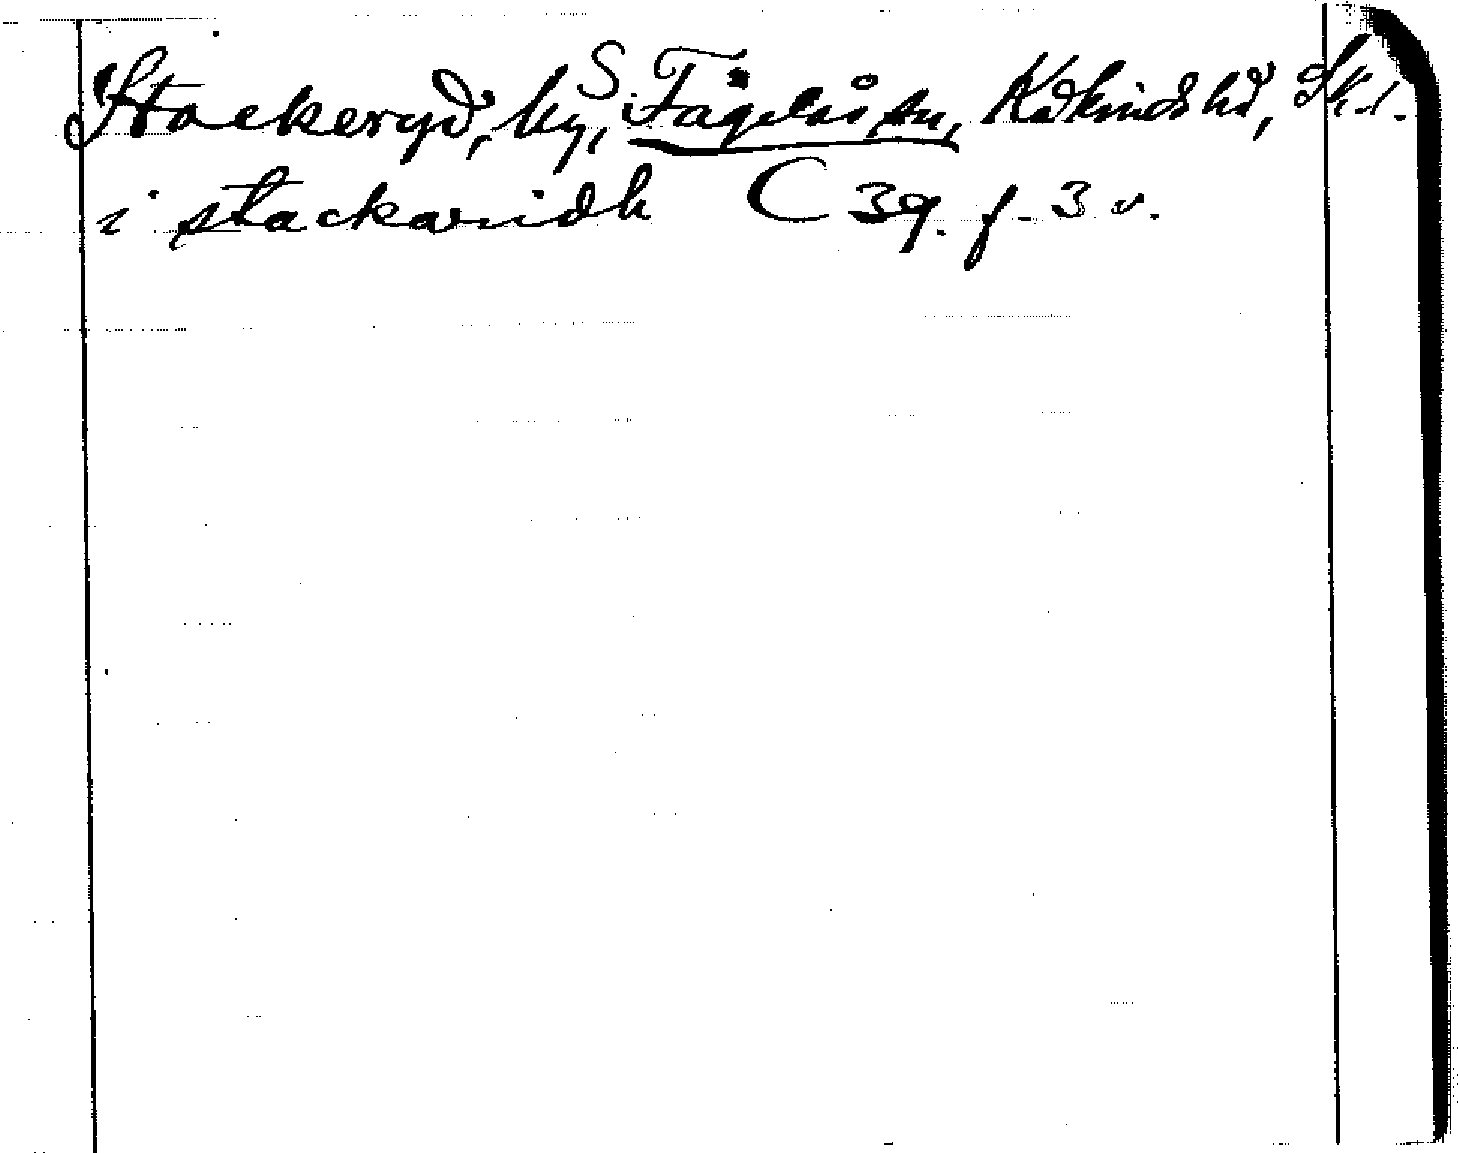 Stockeryd, by, S. Fågelås sn, Kåkinds hd, Sk. l.
i stackaridh C 39. f. 3 v.